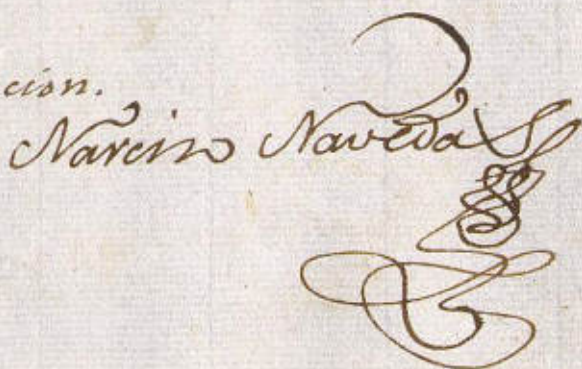 cion.
Narciso Naveda